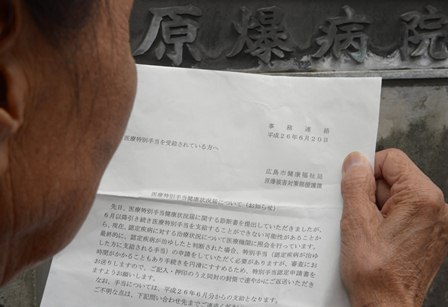 原爆病院
事務連絡
平成26年6月20日
医療特別手当を受給されている方へ
広島市健康福祉局
原爆被害対策部援護課
医療特別手当健康状況届について(お知らせ)
先日、医療特別手当健康状況届に関する診断書を提出していただきましたが、
6月以降引き続き医療特別手当を支給することができない可能性があることか
ら、現在、認定疾病に対する治療状況について医療機関に照会を行っています。
最終的に、認定疾病が治ゆしたと判断された場合、特別手当(認定疾病が治ゆ
した方に支給する手当)の申請をしていただく必要がありますが、審査にお
時間がかかることもあり手続きを円滑にすすめるため、特別手当認定申請書を
お送りしますので、ご記入・押印のうえ同封の封筒で速やかにご返送いただき
ますようお願いします。
なお、手当については、平成26年6月分からの支給となります。
ご不明な点は、下記問い合わせ先までご連絡